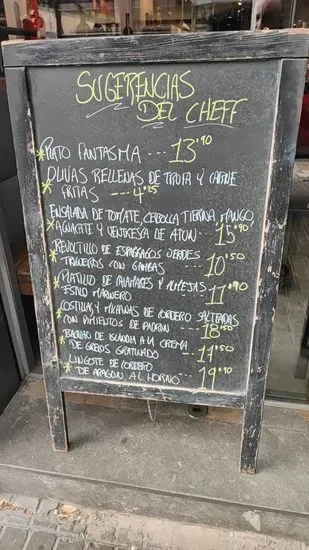 SUGERENCIAS
DEL CHEFF
*PLATO FANTASMA --- 13'90
*OLIVAS RELLENAS DE TRUFA Y CARNE
FRITAS --- 4'25
ENSALADA DE TOMATE, CEBOLLA TIERNA MANGO,
*AGUACATE Y VENTRESCA DE ATÚN --- 15'90
REVOLTILLO DE ESPARRAGOS VERDES
*TRIGUEROS CON GAMBAS --- 10'50
*PLATILLO DE CALAMARES Y ALMEJAS
ESTILO MARINERO --- 11'90
COSTILLAS Y MEDIANAS DE CORDERO SALTEADAS
*CON PIMIENTOS DE PADRÓN --- 18'50
BACALAO DE ISLANDIA A LA CREMA
*DE GRELOS GRATINADO --- 11'50
LINGOTE DE CORDERO
*DE ARAGON AL HORNO --- 19'90